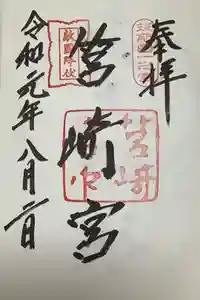 奉拝
筑前國一之宮
筥崎宮
敵國降伏
筥崎宮
令和元年八月二日